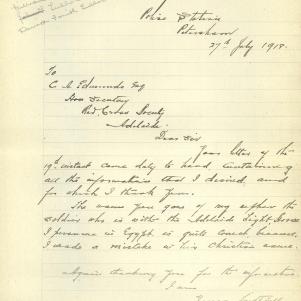 Police Station
Petersham
27th July 1918.
To
C A Edmunds Esq
Hon Secretary
Red Cross Society
Adelaide
Dear Sir
Your letter of the
19th instant came duly to hand containing
all the information that I desired, and
for which I thank you.
The name you gave of my nephew the
soldier who is with the Adelaide Light Horse
I presume in Egypt is quite correct because
I made a mistake in his Christian name.
Again thanking you for the information
I am